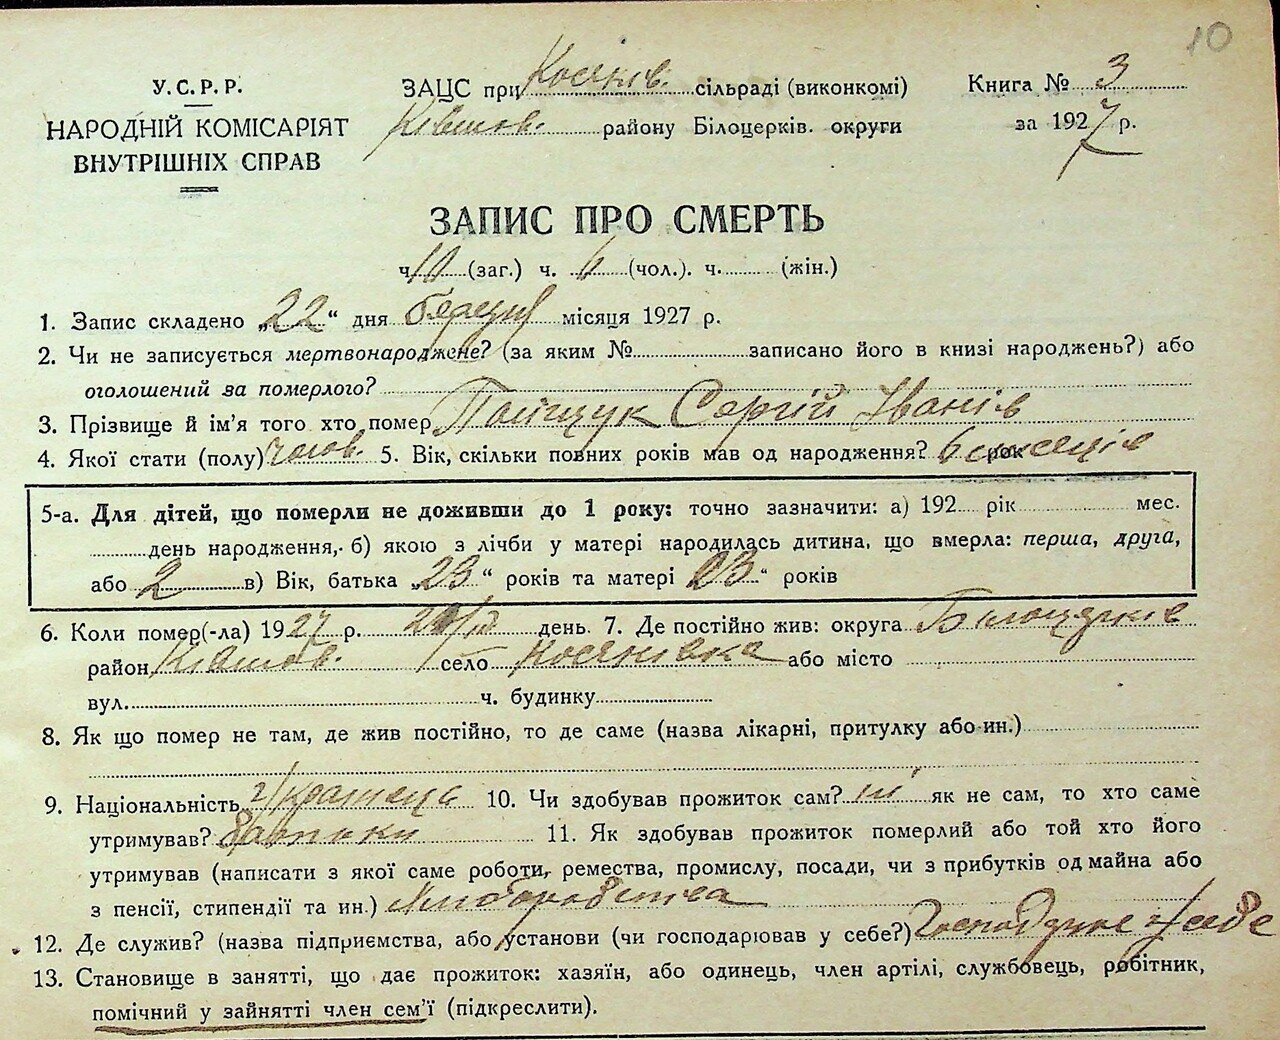 10
У.С.Р.Р.
НАРОДНІЙ КОМІСАРІЯТ
ВНУТРІШНІХ СПРАВ
ЗАЦС при Косяків. сільраді (виконкомі)
району Білоцерків. округи
Книга № 3
за 1927 р.
ЗАПИС ПРО СМЕРТЬ
ч. 10 (заг.) ч. 6 (чол.). ч. (жін.)
1. Запис складено „22“ дня березня місяця 1927 р.
2. Чи не записується мертвонароджене? (за яким № записано його в книзі народжень?) або
оголошений за померлого?
3. Прізвище й ім'я того хто помер Поліщук Сергій Іванів
4. Якої стати (полу) чолов. 5. Вік, скільки повних років мав од народження? 6 місяців рок
5-а. Для дітей, що померли не доживши до 1 року: точно зазначити: а) 192 рік мес.
день народження, б) якою з лічби у матері народилась дитина, що вмерла: перша, друга,
або 2 в) Вік, батька „23“ років та матері „23“ років
6. Коли помер(-ла) 1927 р. день. 7. Де постійно жив: округа Білоцерків
район село Косяківка або місто
вул. ч. будинку
8. Як що помер не там, де жив постійно, то де саме (назва лікарні, притулку або ин.)
9. Національність Українець 10. Чи здобував прожиток сам? ні як не сам, то хто саме
утримував? батьки 11. Як здобував прожиток померлий або той хто його
утримував (написати з якої саме роботи, ремества, промислу, посади, чи з прибутків од майна або
з пенсії, стипендії та ин.) Хліборобства
12. Де служив? (назва підприємства, або установи (чи господарював у себе?) у себе
13. Становище в занятті, що дає прожиток: хазяїн, або одинець, член артілі, службовець, робітник,
помічний у зайнятті член сем'ї (підкреслити).